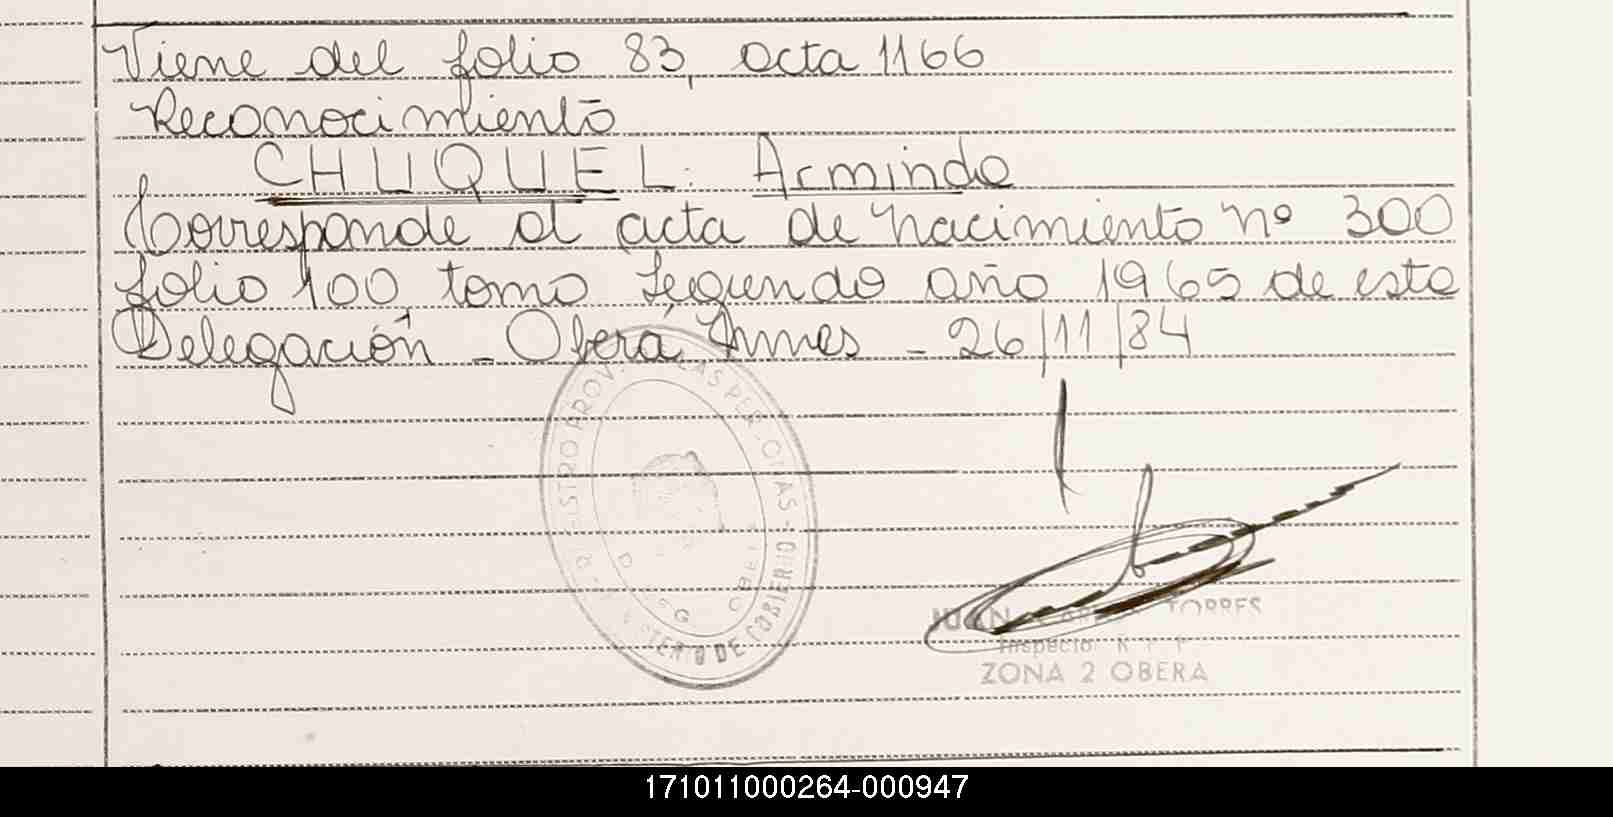 Viene del folio 83, acta 1166
Reconocimiento
CHUQUEL: Armindo
Corresponde al acta de nacimiento nº 300
folio 100, tomo segundo año 1965 de esta
Delegación - Oberá, Mnes - 26/11/84
JUAN CARLOS TORRES
Inspector R P P
ZONA 2 OBERA
171011000264-000947